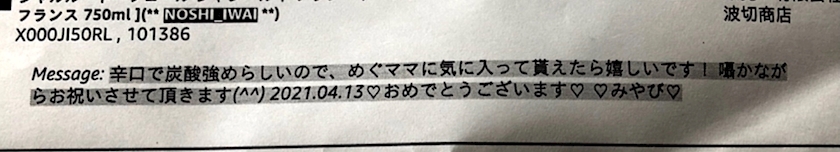 フランス 750ml ](** NOSHI_IWAI **)
波切商店
X000JI50RL , 101386
Message: 辛口で炭酸強めらしいので、めぐママに気に入って貰えたら嬉しいです！ 囁かなが
らお祝いさせて頂きます(^^) 2021.04.13♡おめでとうございます♡ ♡みやび♡